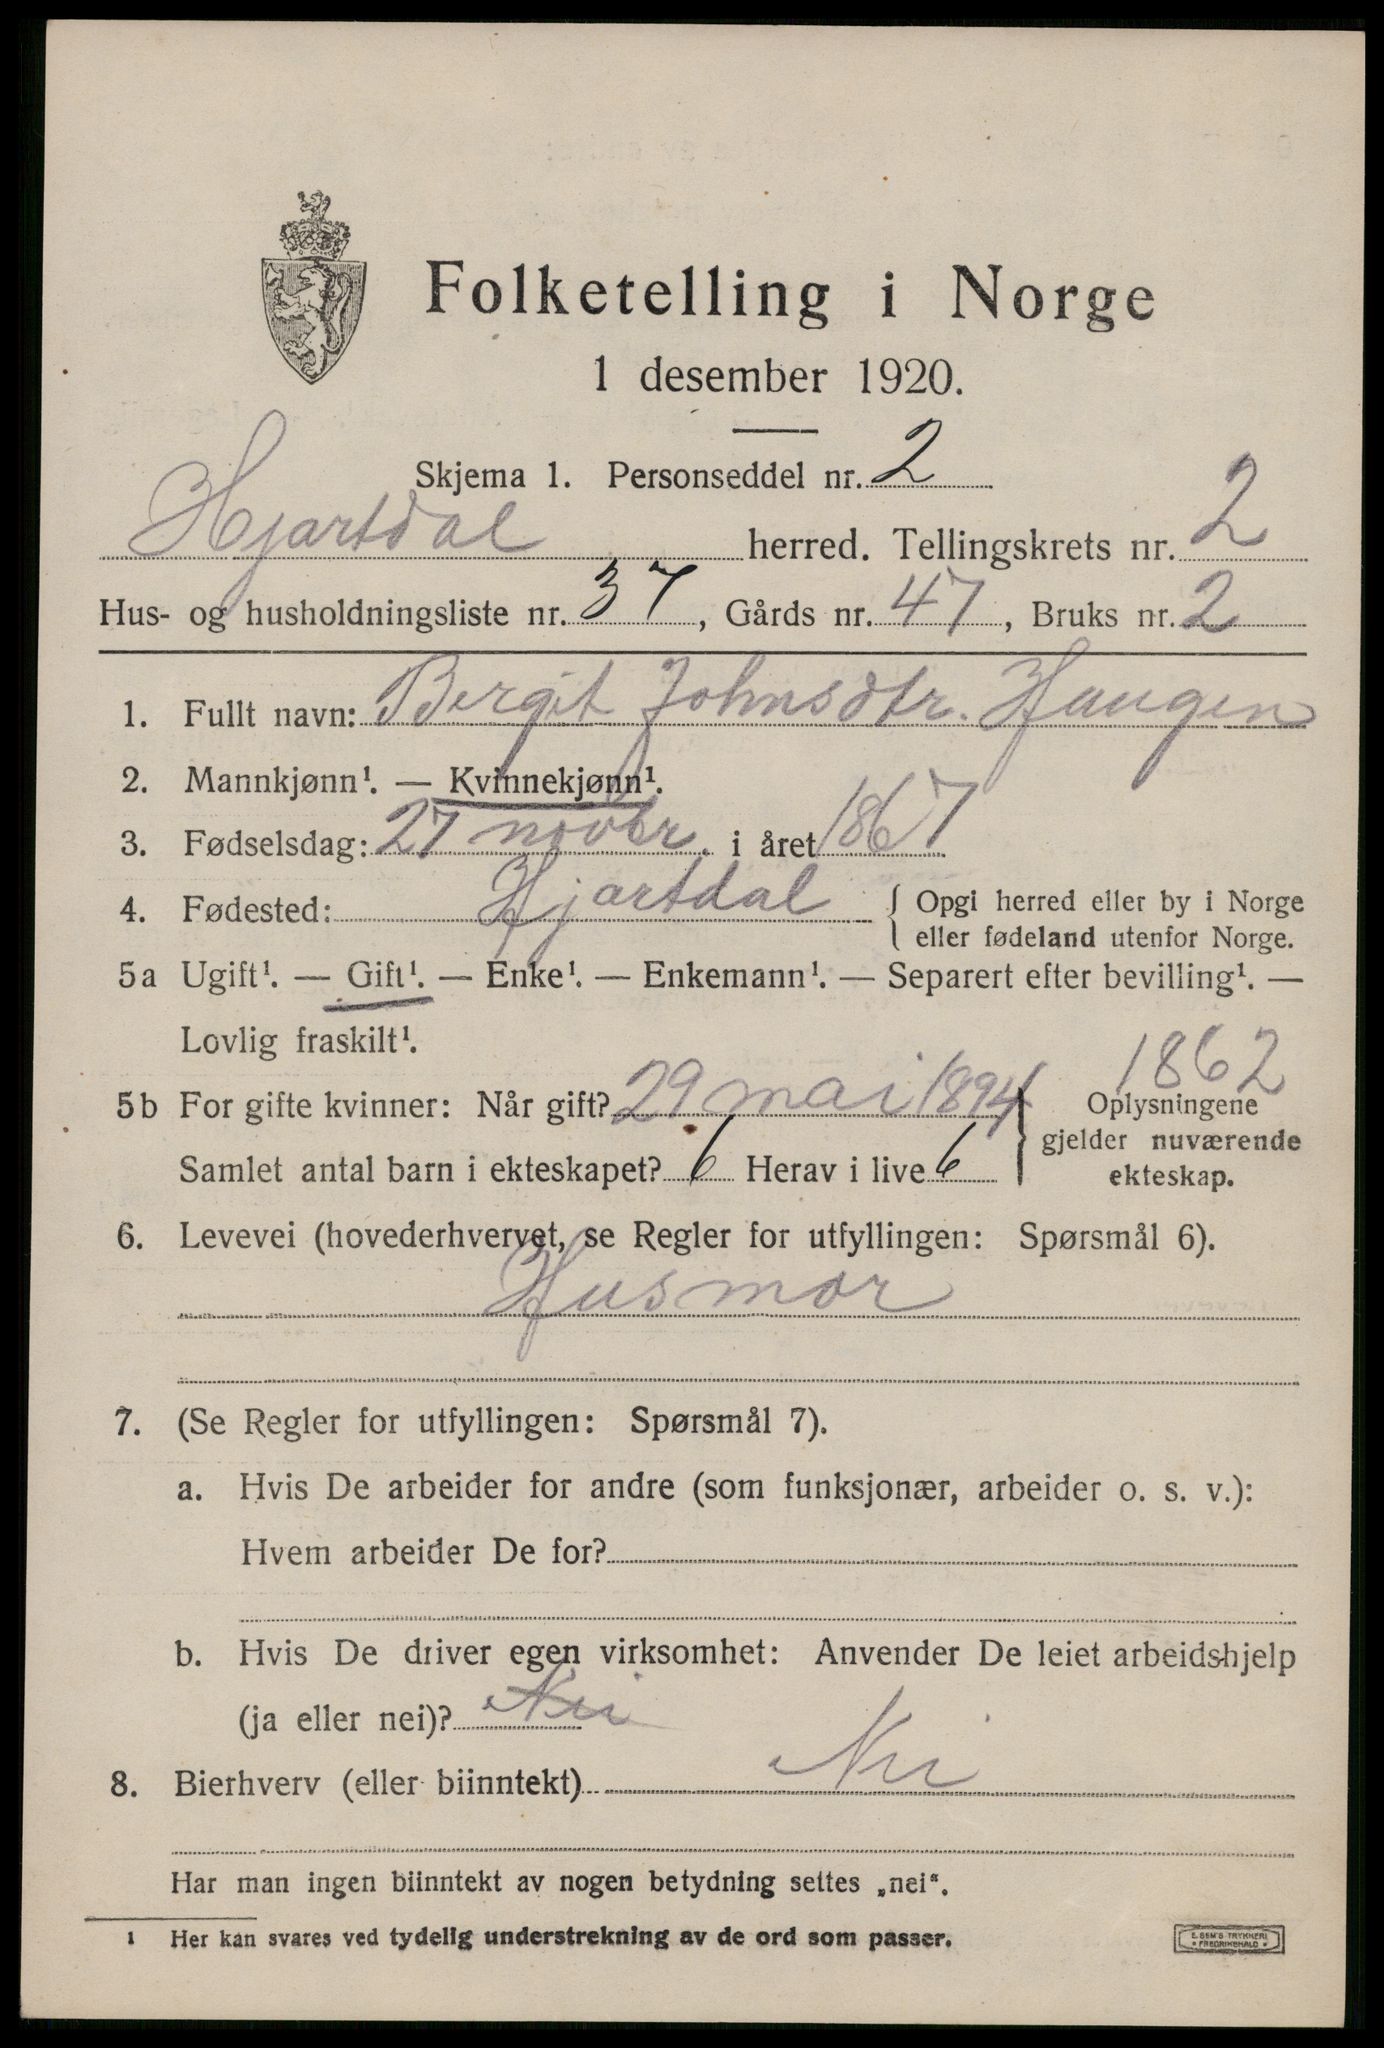 Folketelling i Norge
1 desember 1920.
Skjema 1. Personseddel nr. 2
Hjartdal herred. Tellingskrets nr. 2
Hus- og husholdningsliste nr. 37, Gårds nr. 47, Bruks nr. 2
1. Fullt navn: Bergit Johnsdtr. Haugen
2. Mannkjønn¹. — Kvinnekjønn¹.
3. Fødselsdag: 27 novbr. i året 1867
4. Fødested: Hjartdal { Opgi herred eller by i Norge
eller fødeland utenfor Norge.
5a Ugift¹. — Gift¹. — Enke¹. — Enkemann¹. — Separert efter bevilling¹. —
Lovlig fraskilt¹.
1862
5b For gifte kvinner: Når gift? 29 mai 1894 } Oplysningene
gjelder nuværende
Samlet antal barn i ekteskapet? 6 Herav i live 6 ekteskap.
6. Levevei (hovederhvervet, se Regler for utfyllingen: Spørsmål 6).
Husmor
7. (Se Regler for utfyllingen: Spørsmål 7).
a. Hvis De arbeider for andre (som funksjonær, arbeider o. s. v.):
Hvem arbeider De for?
b. Hvis De driver egen virksomhet: Anvender De leiet arbeidshjelp
(ja eller nei)? Nei
8. Bierhverv (eller biinntekt) Nei
Har man ingen biinntekt av nogen betydning settes „nei“.
¹ Her kan svares ved tydelig understrekning av de ord som passer.
E. SEM'S TRYKKERI
• FREDRIKSHALD •